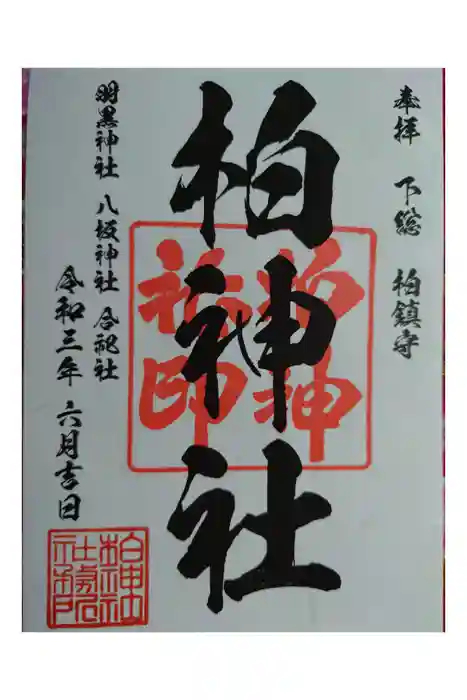 奉拝 下総 柏鎮守
柏神社
柏神社印
羽黒神社 八坂神社 合祀社
令和三年 六月吉日
柏神社
社務所